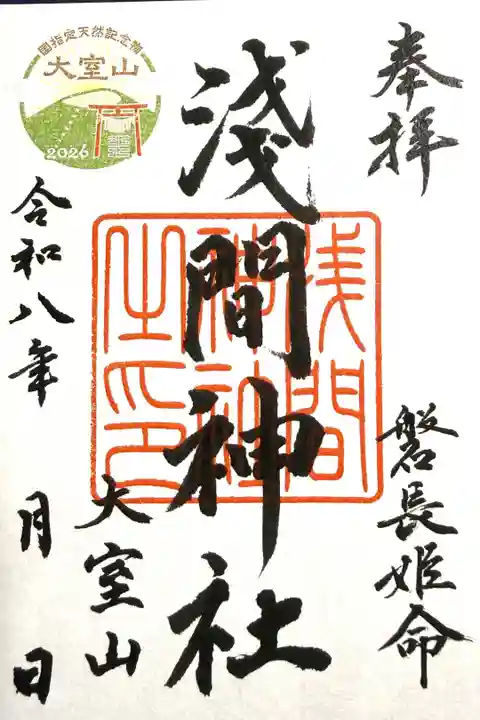 奉拝
磐長姫命
淺間神社
浅間
神社
之印
大室山
令和八年
月
日
國指定天然記念物
大室山
2026